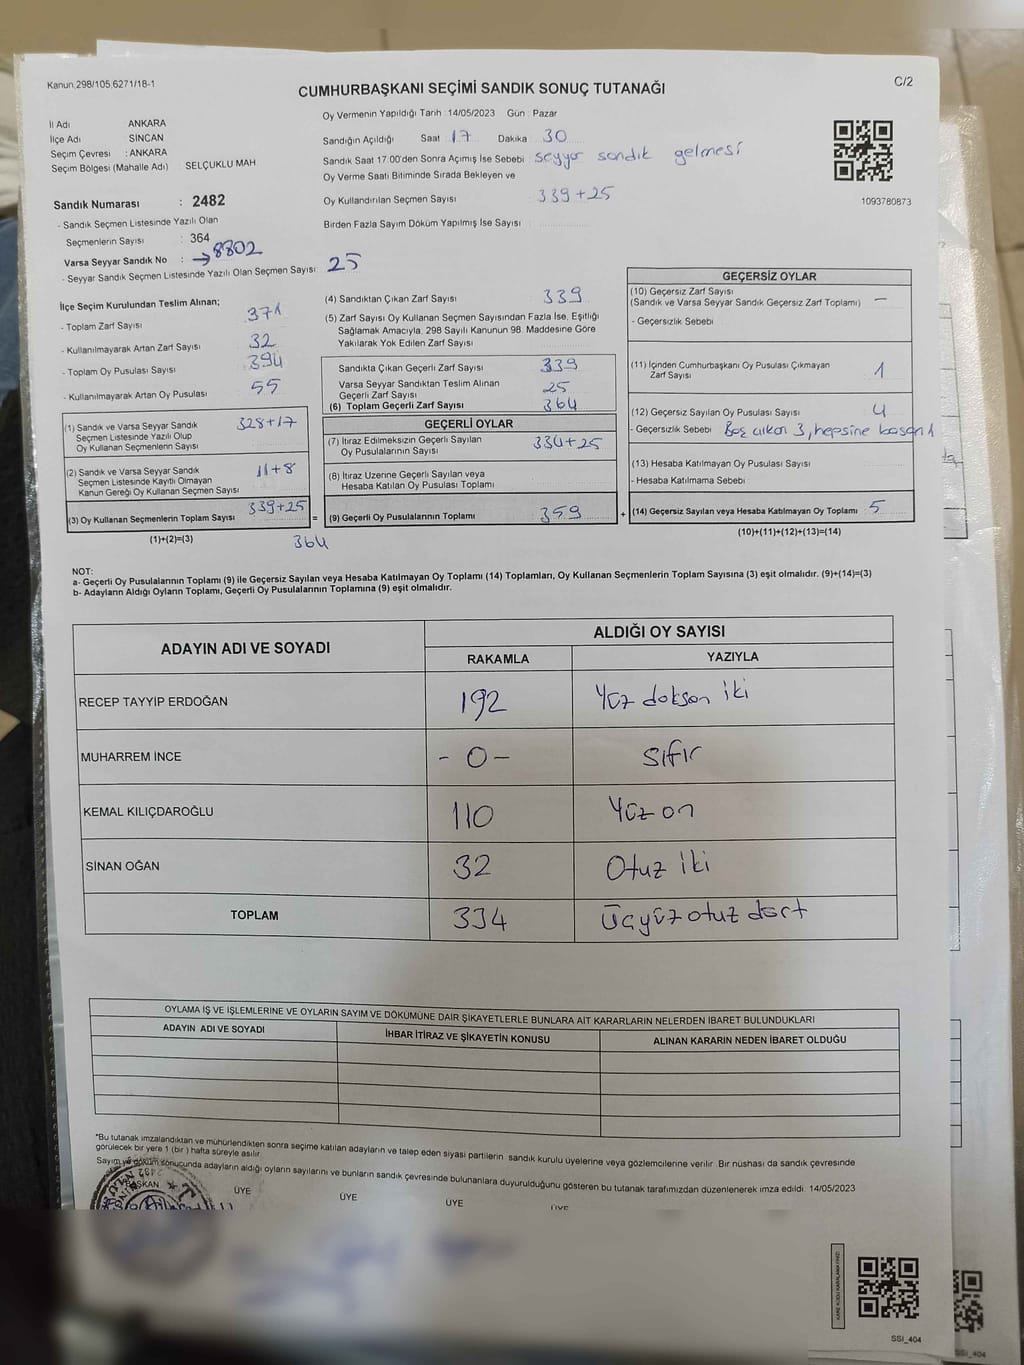 Kanun,298/105,6271/18-1
C/2
CUMHURBAŞKANI SEÇİMİ SANDIK SONUÇ TUTANAĞI
İl Adı ANKARA
İlçe Adı SİNCAN
Seçim Çevresi : ANKARA
Seçim Bölgesi (Mahalle Adı) SELÇUKLU MAH
Sandık Numarası : 2482
- Sandık Seçmen Listesinde Yazılı Olan
Seçmenlerin Sayısı : 364
Varsa Seyyar Sandık No : →8802
- Seyyar Sandık Seçmen Listesinde Yazılı Olan Seçmen Sayısı: 25
Oy Vermenin Yapıldığı Tarih : 14/05/2023 Gün : Pazar
Sandığın Açıldığı Saat 17 Dakika 30
Sandık Saat 17:00'den Sonra Açımış İse Sebebi : seyyar sandık gelmesi
Oy Verme Saati Bitiminde Sırada Bekleyen ve
Oy Kullandırılan Seçmen Sayısı : 339+25
Birden Fazla Sayım Döküm Yapılmış İse Sayısı :
1093780873
İlçe Seçim Kurulundan Teslim Alınan;
- Toplam Zarf Sayısı 371
- Kullanılmayarak Artan Zarf Sayısı 32
- Toplam Oy Pusulası Sayısı 394
- Kullanılmayarak Artan Oy Pusulası 55
(1) Sandık ve Varsa Seyyar Sandık 328+17
Seçmen Listesinde Yazılı Olup
Oy Kullanan Seçmenlerin Sayısı
(2) Sandık ve Varsa Seyyar Sandık 11+8
Seçmen Listesinde Kayıtlı Olmayan
Kanun Gereği Oy Kullanan Seçmen Sayısı
(3) Oy Kullanan Seçmenlerin Toplam Sayısı 339+25 =
(1)+(2)=(3) 364
(4) Sandıktan Çıkan Zarf Sayısı 339
(5) Zarf Sayısı Oy Kullanan Seçmen Sayısından Fazla İse, Eşitliği
Sağlamak Amacıyla, 298 Sayılı Kanunun 98. Maddesine Göre
Yakılarak Yok Edilen Zarf Sayısı
Sandıkta Çıkan Geçerli Zarf Sayısı 339
Varsa Seyyar Sandıktan Teslim Alınan
Geçerli Zarf Sayısı 25
(6) Toplam Geçerli Zarf Sayısı 364
GEÇERLİ OYLAR
(7) İtiraz Edilmeksizin Geçerli Sayılan 334+25
Oy Pusulalarının Sayısı
(8) İtiraz Üzerine Geçerli Sayılan veya
Hesaba Katılan Oy Pusulası Toplamı
(9) Geçerli Oy Pusulalarının Toplamı 359 +
GEÇERSİZ OYLAR
(10) Geçersiz Zarf Sayısı
(Sandık ve Varsa Seyyar Sandık Geçersiz Zarf Toplamı) -
- Geçersizlik Sebebi
(11) İçinden Cumhurbaşkanı Oy Pusulası Çıkmayan
Zarf Sayısı 1
(12) Geçersiz Sayılan Oy Pusulası Sayısı 4
- Geçersizlik Sebebi Boş çıkan 3, hepsine basan 1
(13) Hesaba Katılmayan Oy Pusulası Sayısı
- Hesaba Katılmama Sebebi
(14) Geçersiz Sayılan veya Hesaba Katılmayan Oy Toplamı 5
(10)+(11)+(12)+(13)=(14)
NOT:
a- Geçerli Oy Pusulalarının Toplamı (9) ile Geçersiz Sayılan veya Hesaba Katılmayan Oy Toplamı (14) Toplamları, Oy Kullanan Seçmenlerin Toplam Sayısına (3) eşit olmalıdır. (9)+(14)=(3)
b- Adayların Aldığı Oyların Toplamı, Geçerli Oy Pusulalarının Toplamına (9) eşit olmalıdır.
ADAYIN ADI VE SOYADI ALDIĞI OY SAYISI
RAKAMLA YAZIYLA
RECEP TAYYİP ERDOĞAN 192 Yüz doksan iki
MUHARREM İNCE - 0 - sıfır
KEMAL KILIÇDAROĞLU 110 Yüz on
SİNAN OĞAN 32 Otuz iki
TOPLAM 334 Üçyüz otuz dört
OYLAMA İŞ VE İŞLEMLERİNE VE OYLARIN SAYIM VE DÖKÜMÜNE DAİR ŞİKAYETLERLE BUNLARA AİT KARARLARIN NELERDEN İBARET BULUNDUKLARI
ADAYIN ADI VE SOYADI İHBAR İTİRAZ VE ŞİKAYETİN KONUSU ALINAN KARARIN NEDEN İBARET OLDUĞU
*Bu tutanak imzalandıktan ve mühürlendikten sonra seçime katılan adayların ve talep eden siyasi partilerin sandık kurulu üyelerine veya gözlemcilerine verilir. Bir nüshası da sandık çevresinde
görülecek bir yere 1 (bir) hafta süreyle asılır.
Sayım ve döküm sonucunda adayların aldığı oyların sayılarını ve bunların sandık çevresinde bulunanlara duyurulduğunu gösteren bu tutanak tarafımızdan düzenlenerek imza edildi. 14/05/2023
BAŞKAN ÜYE ÜYE ÜYE ÜYE
SSI_404
SSI_404